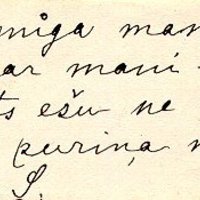 miga man
ar mani
ts ešu ne
(puriņa
S.